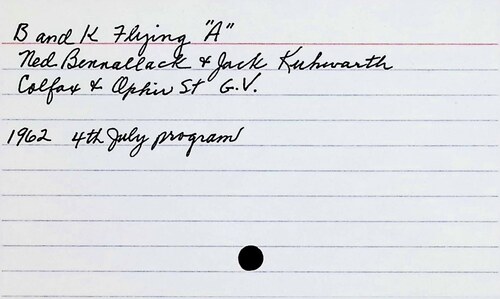 B and K Flying "A"
Ned Bennallack & Jack Kuhwarth
Colfax & Ophir St G.V.
1962 4th July program